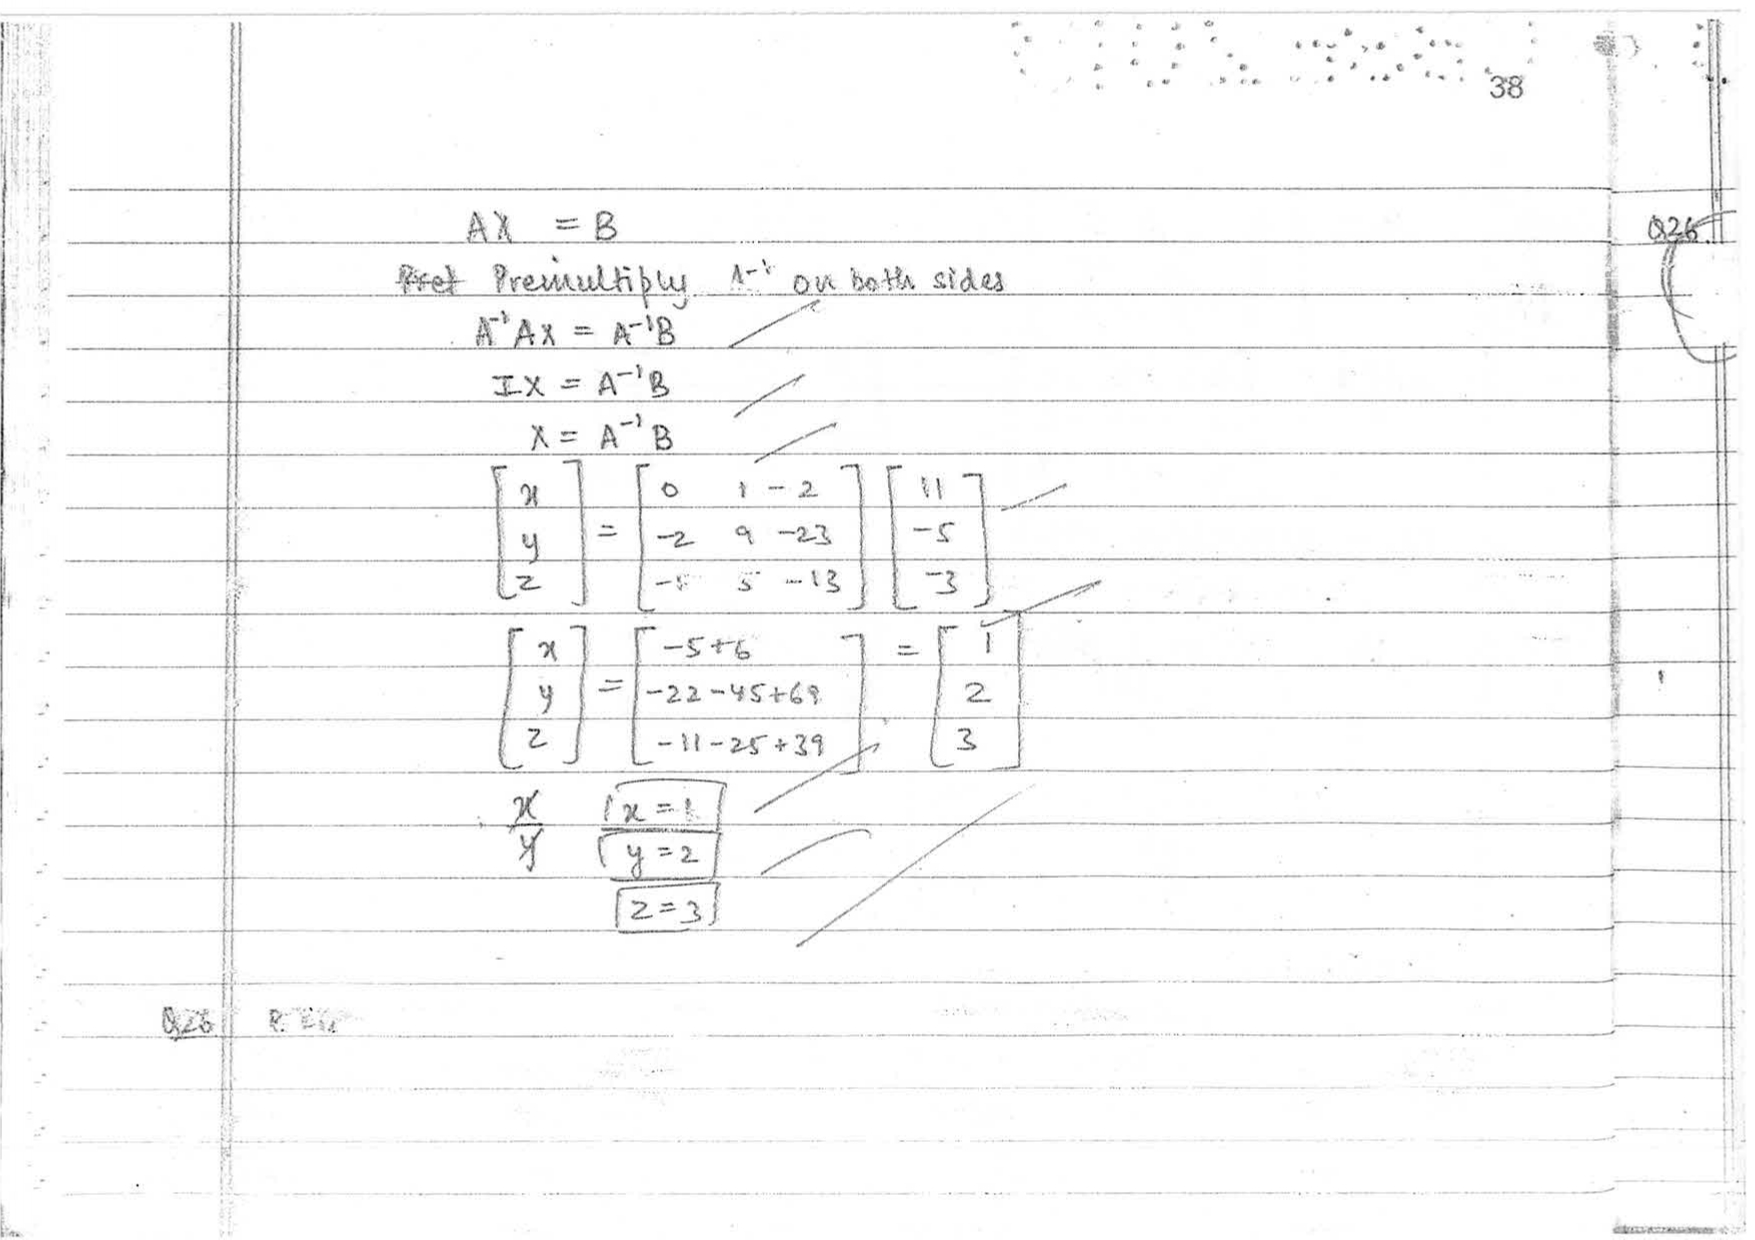 38
AX = B
Premultiply A⁻¹ on both sides
A⁻¹AX = A⁻¹B
IX = A⁻¹B
X = A⁻¹B
[x y z] = [0 1 -2; -2 9 -23; -1 5 -13] [11 -5 -3]
[x y z] = [-5+6; -22-45+69; -11-25+39] = [1 2 3]
x x=1
y y=2
z=3
Q26
Q26.